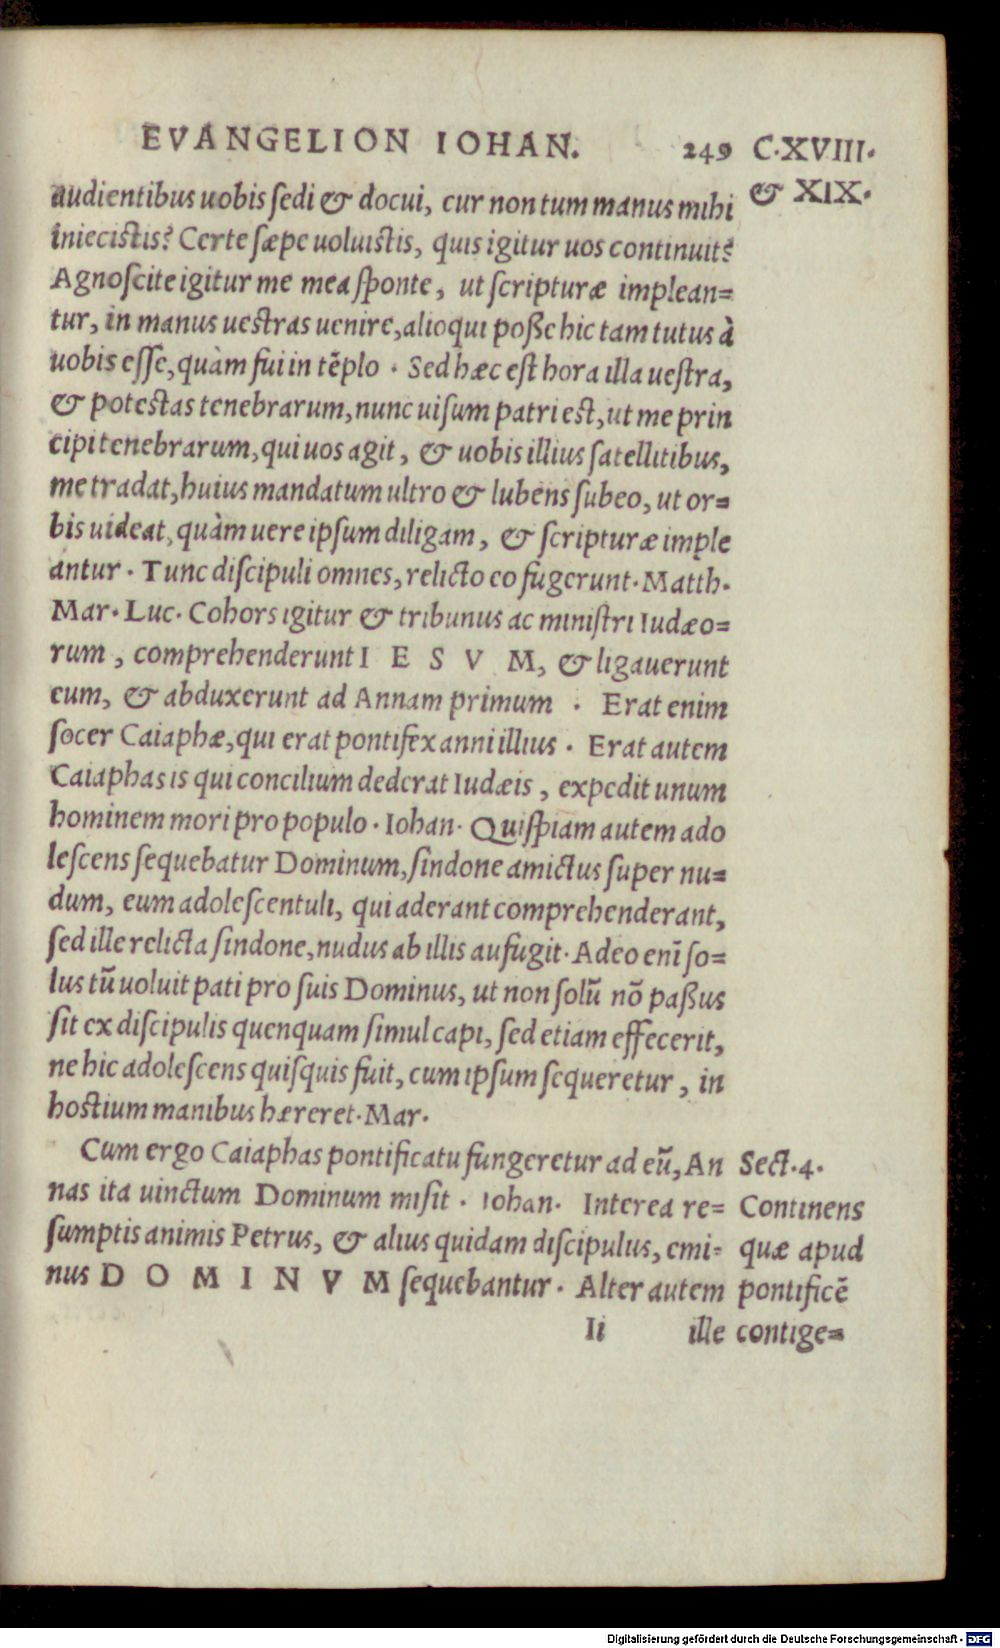 EVANGELION IOHAN. 249 C.XVIII.
& XIX.
audientibus uobis sedi & docui, cur non tum manus mihi
iniecistis? Certe sæpe uoluistis, quis igitur uos continuit?
Agnoscite igitur me mea sponte, ut scripturæ implean=
tur, in manus uestras uenire, alioqui poße hic tam tutus à
uobis esse, quàm fui in tẽplo. Sed hæc est hora illa uestra,
& potestas tenebrarum, nunc uisum patri est, ut me prin
cipi tenebrarum, qui uos agit, & uobis illius satellitibus,
me tradat, huius mandatum ultro & lubens subeo, ut or=
bis uideat, quàm uere ipsum diligam, & scripturæ imple
antur. Tunc discipuli omnes, relicto eo fugerunt. Matth.
Mar. Luc. Cohors igitur & tribunus ac ministri Iudæo=
rum, comprehenderunt I E S V M, & ligauerunt
eum, & abduxerunt ad Annam primum. Erat enim
socer Caiaphæ, qui erat pontifex anni illius. Erat autem
Caiaphas is qui concilium dederat Iudæis, expedit unum
hominem mori pro populo. Iohan. Quispiam autem ado
lescens sequebatur Dominum, sindone amictus super nu=
dum, eum adolescentuli, qui aderant comprehenderant,
sed ille relicta sindone, nudus ab illis aufugit. Adeo enĩ so=
lus tũ uoluit pati pro suis Dominus, ut non solũ nõ paßus
sit ex discipulis quenquam simul capi, sed etiam effecerit,
ne hic adolescens quisquis fuit, cum ipsum sequeretur, in
hostium manibus hæreret. Mar.
Cum ergo Caiaphas pontificatu fungeretur ad eũ, An
nas ita uinctum Dominum misit. Iohan. Interea re=
sumptis animis Petrus, & alius quidam discipulus, emi=
nus D O M I N V M sequebantur. Alter autem
Ii ille
Sect.4.
Continens
quæ apud
pontificẽ
contige=
Digitalisierung gefördert durch die Deutsche Forschungsgemeinschaft - DFG